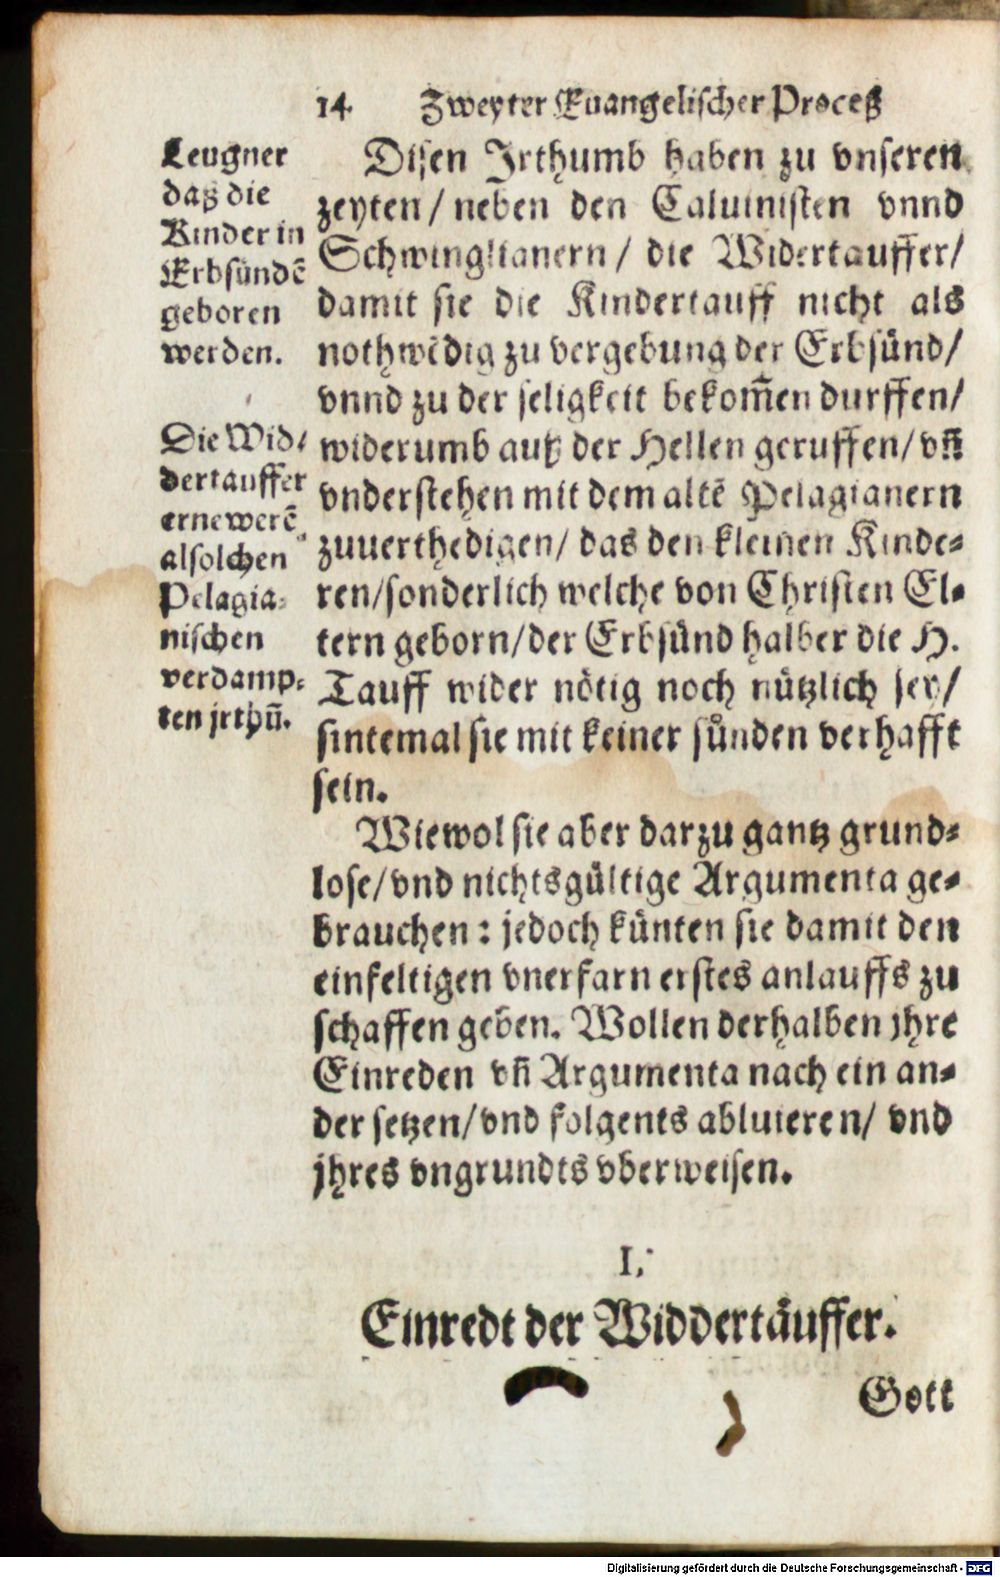 14 Zweyter Euangelischer Proceß
Leugner
daß die
Kinder in
Erbsündē
geboren
werden.
Die Wid/
dertauffer
ernewerē
alsolchen
Pelagia-
nischen
verdamp-
ten jrthū.
Disen Irthumb haben zu vnseren
zeyten / neben den Caluinisten vnnd
Schwinglianern / die Widertauffer /
damit sie die Kindertauff nicht als
nothwēdig zu vergebung der Erbsünd /
vnnd zu der seligkeit bekom̄en durffen /
widerumb auß der Hellen geruffen / vn̄
vnderstehen mit dem altē Pelagianern
zuuerthedigen / das den kleinen Kinde-
ren / sonderlich welche von Christen El-
tern geborn / der Erbsünd halber die H.
Tauff wider nötig noch nützlich sey /
sintemal sie mit keiner sůnden verhafft
sein.
Wiewol sie aber darzu gantz grund-
lose / vnd nichtsgültige Argumenta ge-
brauchen : jedoch künten sie damit den
einfeltigen vnerfarn erstes anlauffs zu
schaffen geben. Wollen derhalben jhre
Einreden vn̄ Argumenta nach ein an-
der setzen / vnd folgents abluieren / vnd
jhres vngrundts vberweisen.
I.
Einredt der Widdertäuffer.
Gott
Digitalisierung gefördert durch die Deutsche Forschungsgemeinschaft - DFG